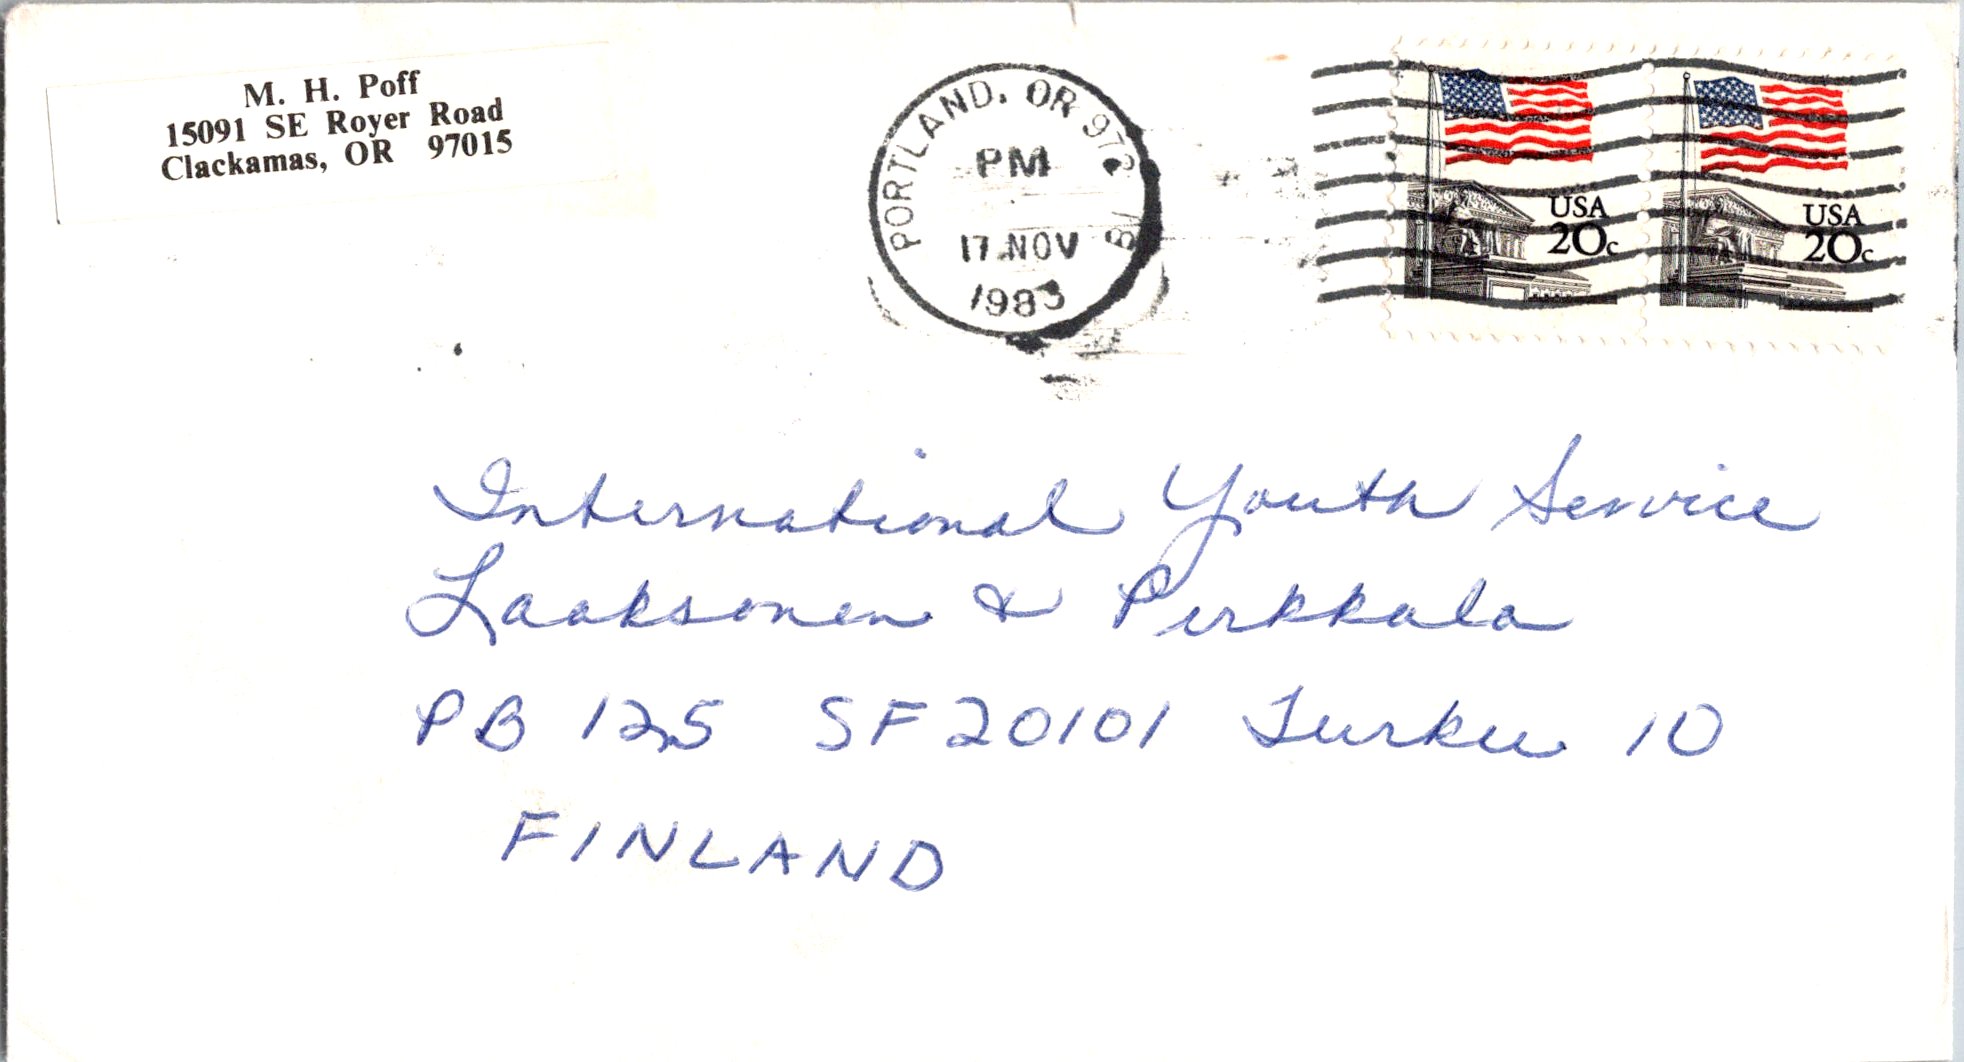 M. H. Poff
15091 SE Royer Road
Clackamas, OR 97015
PORTLAND, OR 972
PM
17 NOV
1983
USA
20c
USA
20c
International Youth Service
Laaksonen & Perkkala
PB 125 SF 20101 Turku 10
FINLAND